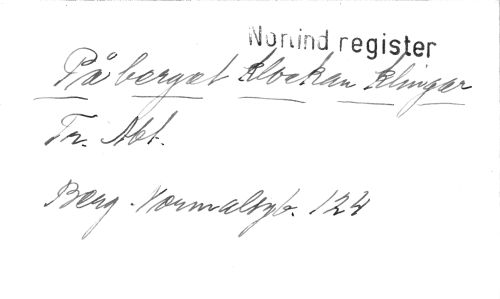 Norlind register
På berget klockan klingar
Tr. Abt.
Berg. Normalsgb. 124